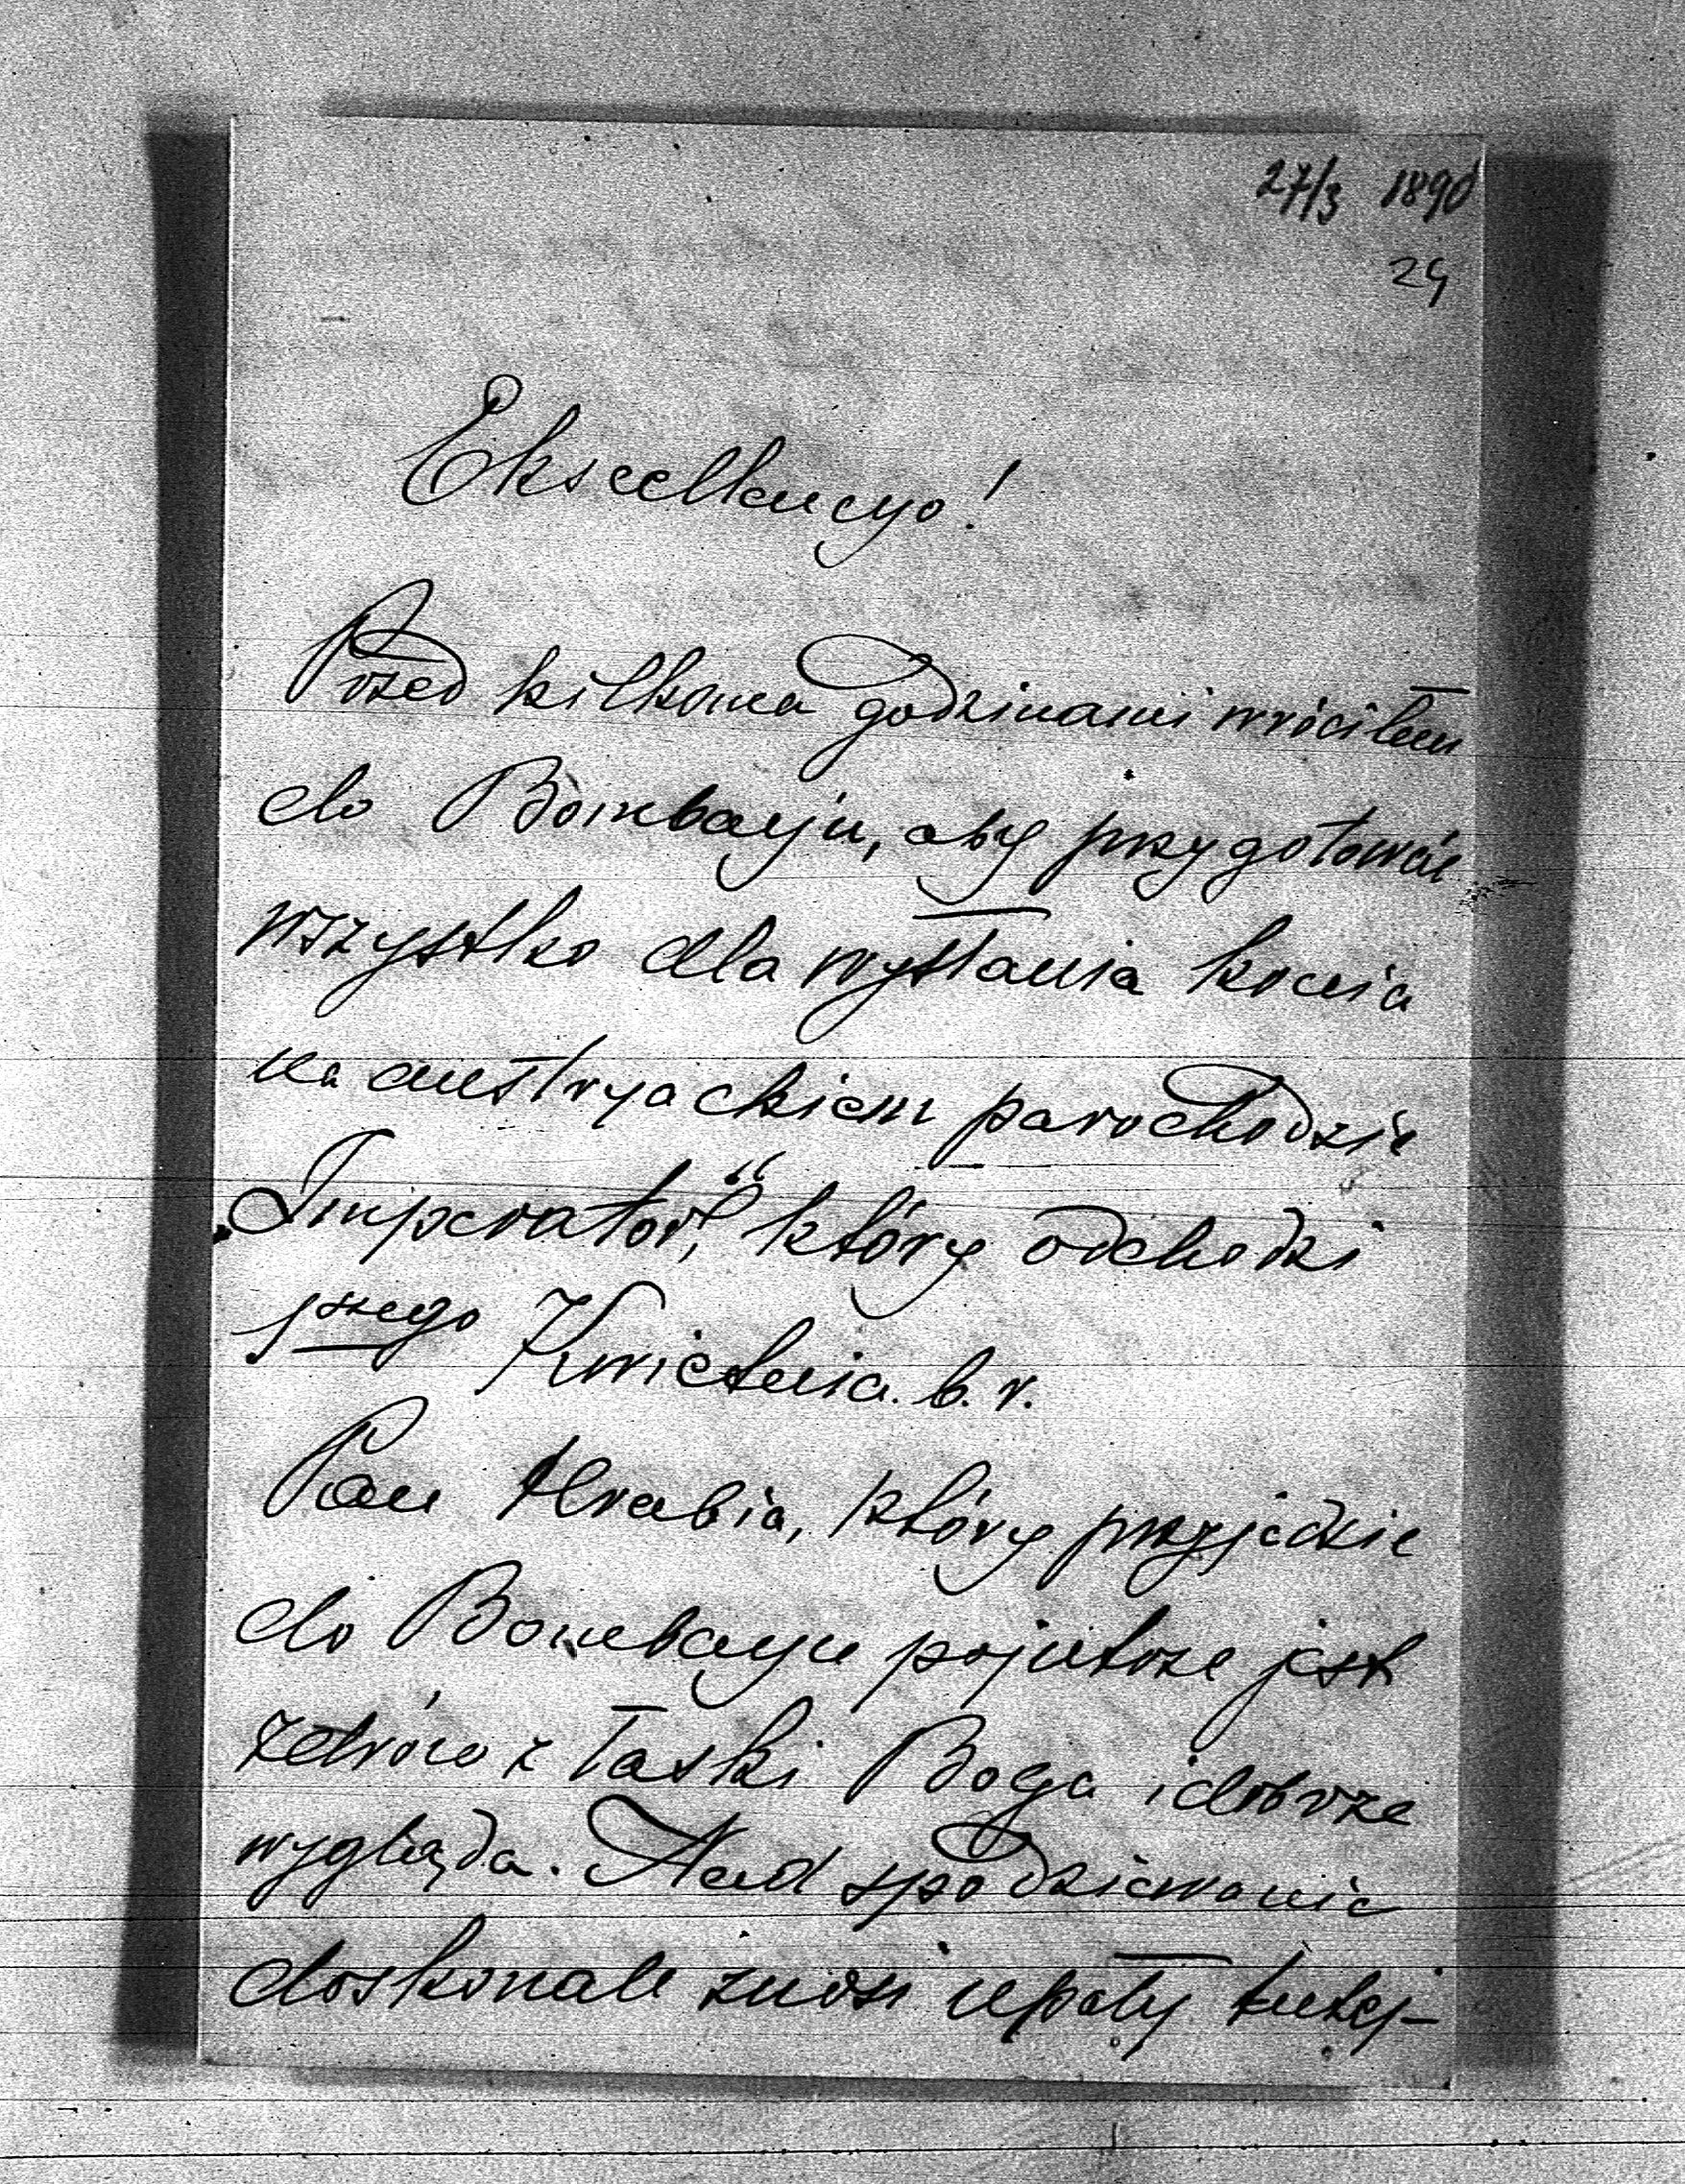 27/3 1890
29
Ekscellencyo!
Przed kilkoma godzinami wróciłem
do Bombayju, aby przygotować
wszystko dla wysłania konia
na austryackiem parochodzie
„Imperator", który odchodzi
pszego Kwietnia. b. r.
Pan Hrabia, który przyjedzie
do Bombayu pojutrze jest
zdrów z łaski Boga i dobrze
wygląda. Nad spodziewanie
doskonale znosi upały tutej-